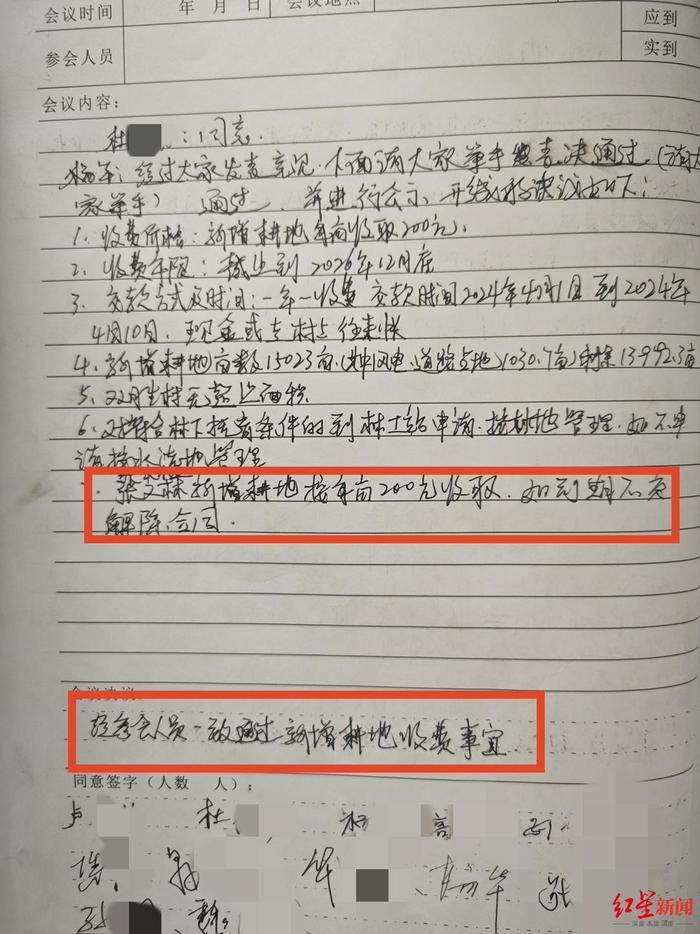 会议时间 年 月 日 会议地点 应到
参会人员 实到
会议内容：
杜 ：同意.
杨军：经过大家发表意见.下面请大家举手表决通过.(请大
家举手） 通过 . 并进行公示. 形成决议如下：
1. 收费价格：新增耕地每亩收取200元.
2. 收费年限：截止到 2026年12月底
3. 交款方式及时间：一年一收费 交款时间2024年4月1日到2024年
4月10日. 现金或 村 往来账
4. 新增耕地亩数15023亩.( 风电、道路占地)1030.7亩)剩余13992.3亩
5. 双胜村无
6. 对符合林下 条件的到林工站申请.按林地管理.如不申
请按水浇地管理
张文 新增耕地按每亩200元收取. 如到期不交
解除合同.
会议决议：
经参会人员一致通过新增耕地收费事宜
同意签字（人数 人）：
卢 杜 杨 高
华 杨华
红星新闻
深度 态度 温度